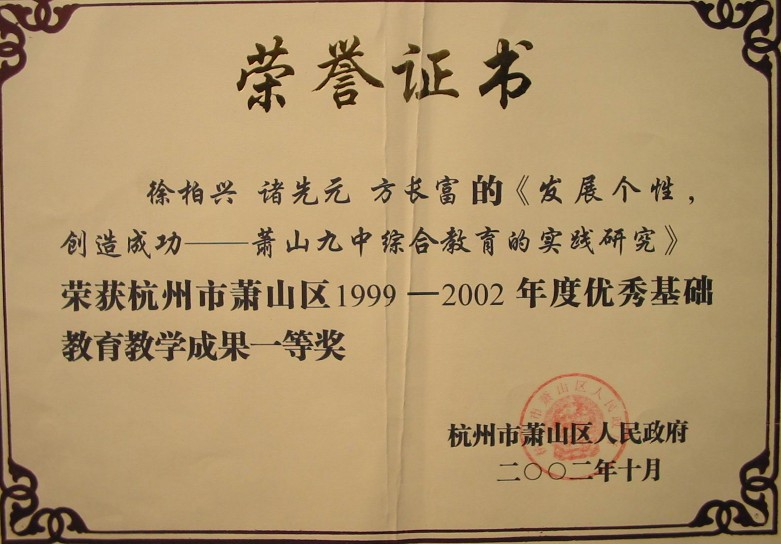 荣誉证书
徐柏兴 诸先元 方长富的《发展个性，
创造成功——萧山九中综合教育的实践研究》
荣获杭州市萧山区1999—2002年度优秀基础
教育教学成果一等奖
杭州市萧山区人民政府
二〇〇二年十月